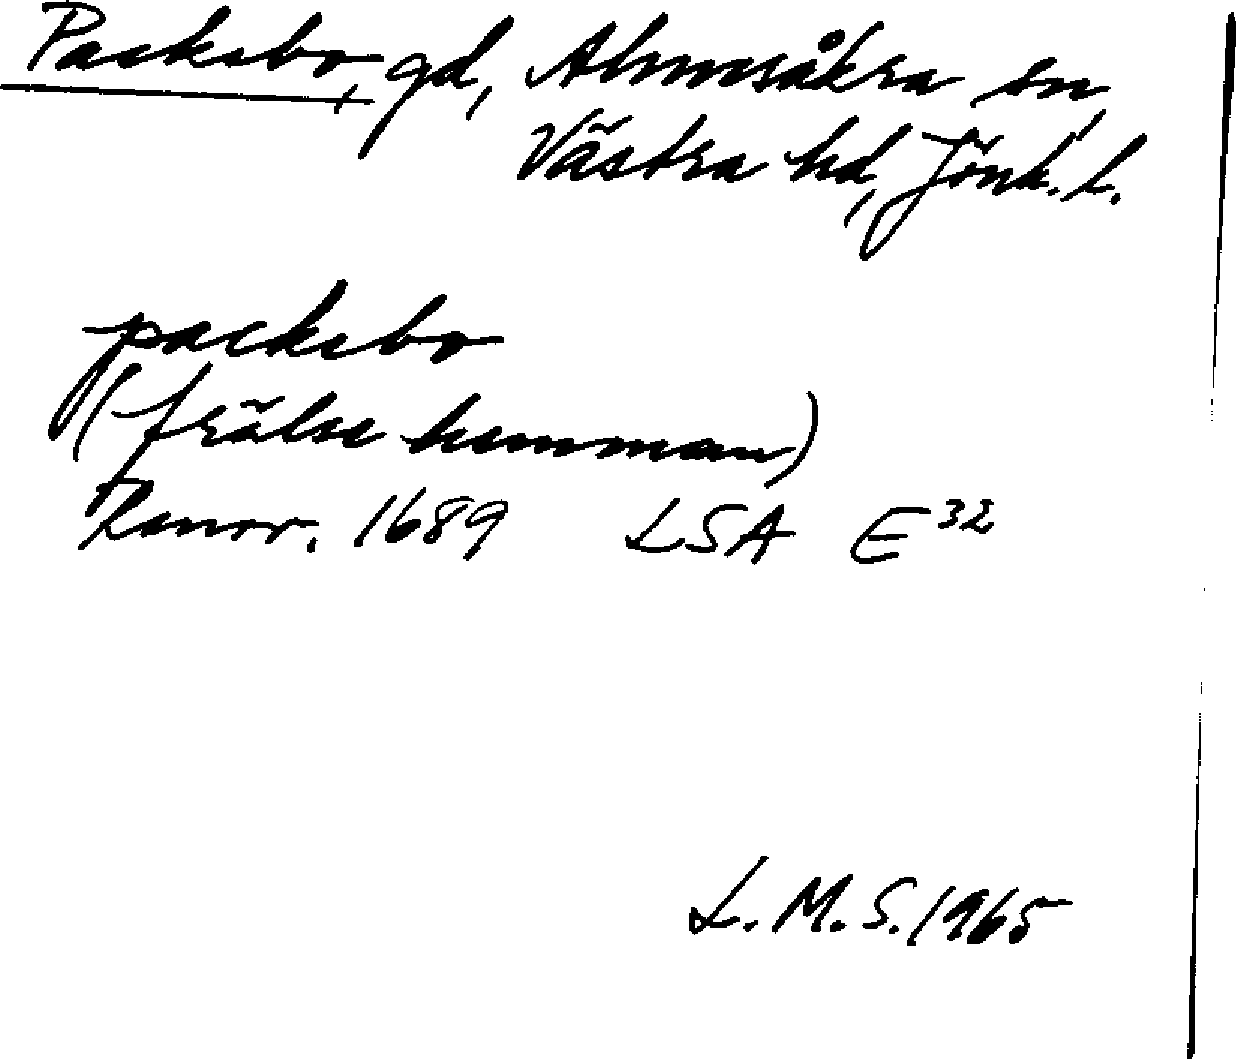 Packsbo, gd, Almesåkra sn,
Västra hd, Jönk. l.
packsbo
(frälse hemman)
Rannr. 1689 LSA E32
L. M. S. 1965